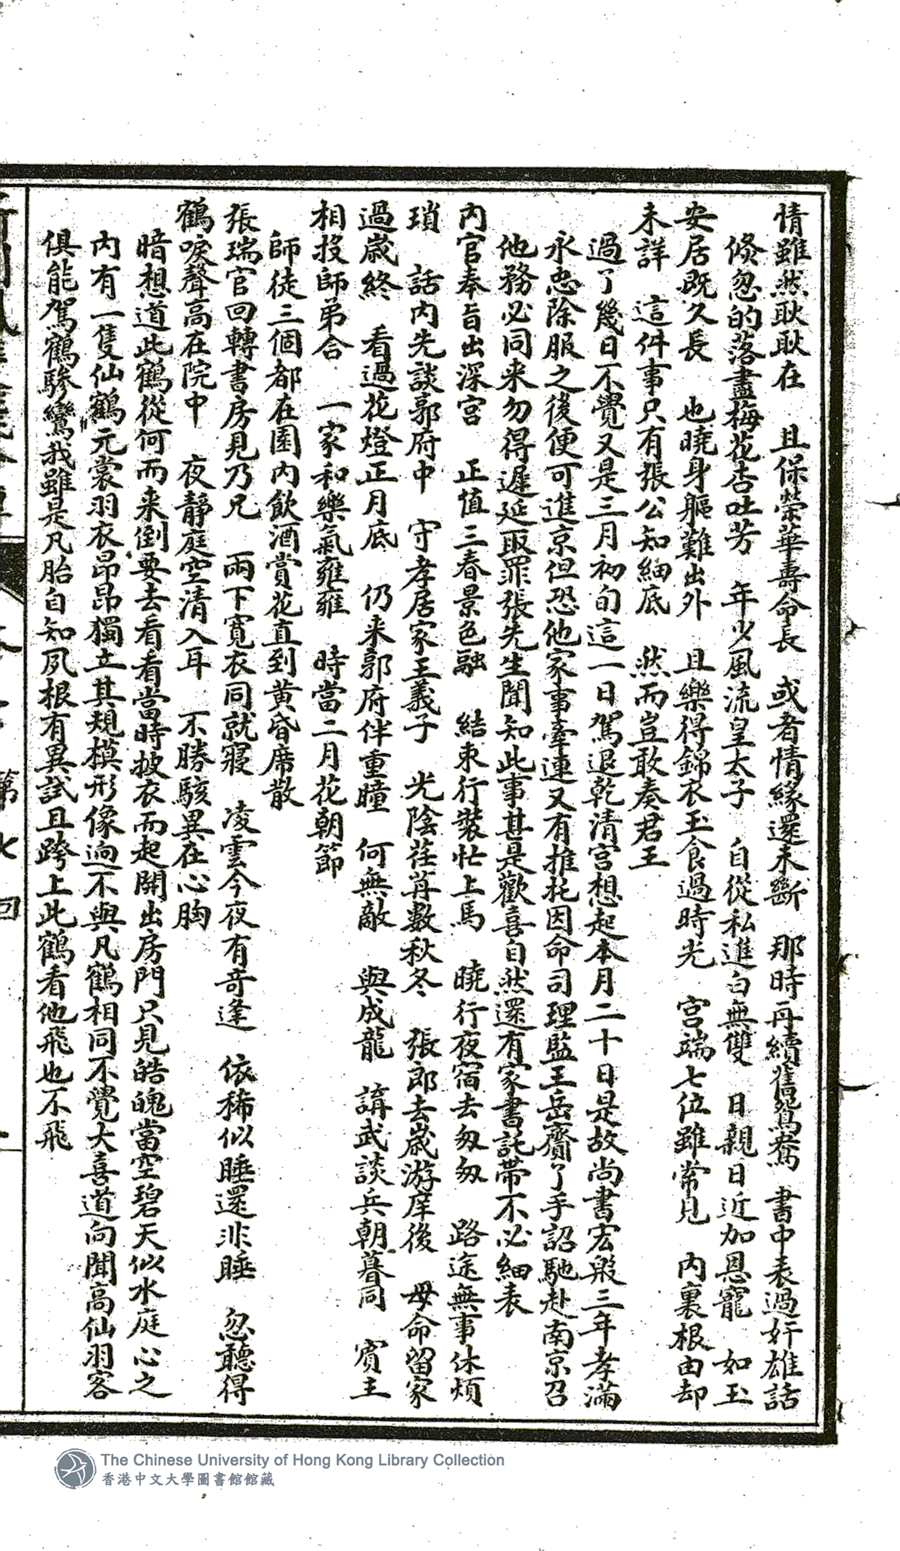 情雖然耿耿在 且保榮華壽命長 或者情緣還未斷 那時再續舊鴛鴦 書中表過奸雄話
倏忽的落盡梅花杏吐芳 年少風流皇太子 自從私進白無雙 日親日近加恩寵 如玉
安居既久長 也曉身軀難出外 且樂得錦衣玉食過時光 宮端七位雖常見 內裏根由却
未詳 這件事只有張公知細底 然而豈敢奏君王
過了幾日不覺又是三月初旬這一日駕退乾清宮想起本月二十日是故尚書宏泉三年孝滿
永忠除服之後便可進京但恐他家事牽連又有推托因命司理監王岳賫了手詔馳赴南京召
他務必同来勿得遲延取罪張先生聞知此事甚是歡喜自然還有家書託帶不必細表
內官奉旨出深宮 正值三春景色融 結束行裝忙上馬 曉行夜宿去匆匆 路途無事休煩
瑣 話內先談郭府中 守孝居家王義子 光陰荏苒數秋冬 張郎去歲游庠後 母命留家
過歲終 看過花燈正月底 仍来郭府伴重瞳 何無敵 與成龍 講武談兵朝暮同 賓主
相投師弟合 一家和樂氣雍雍 時當二月花朝節
師徒三個都在園內飲酒賞花直到黃昏席散
張瑞官回轉書房見乃兄 兩下寬衣同就寢 凌雲今夜有奇逢 依稀似睡還非睡 忽聽得
鶴唳聲高在院中 夜靜庭空清入耳 不勝駭異在心胸
暗想道此鶴從何而来倒要去看看當時披衣而起開出房門只見皓魄當空碧天似水庭心之
內有一隻仙鶴元裳羽衣昂昂獨立其規模形像迥不與凡鶴相同不覺大喜道向聞高仙羽客
俱能駕鶴驂鸞我雖是凡胎自知夙根有異試且跨上此鶴看他飛也不飛
第七回
The Chinese University of Hong Kong Library Collection
香港中文大學圖書館館藏